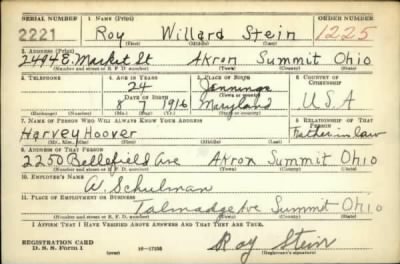 SERIAL NUMBER 1. NAME (Print) ORDER NUMBER
2221 Roy Willard Stein 1225
(First) (Middle) (Last)
2. ADDRESS (Print)
2494 E. Market St Akron Summit Ohio
(Number and street or R. F. D. number) (Town) (County) (State)
3. TELEPHONE 4. AGE IN YEARS 5. PLACE OF BIRTH 6. COUNTRY OF CITIZENSHIP
24 Jennings
DATE OF BIRTH (Town or county)
8 7 1916 Maryland U.S.A
(Exchange) (Number) (Mo.) (Day) (Yr.) (State or country)
7. NAME OF PERSON WHO WILL ALWAYS KNOW YOUR ADDRESS 8. RELATIONSHIP OF THAT PERSON
Harvey Hoover Father in law
(Mr., Mrs., Miss) (First) (Middle) (Last)
9. ADDRESS OF THAT PERSON
2250 Bellefield Ave Akron Summit Ohio
(Number and street or R. F. D. number) (Town) (County) (State)
10. EMPLOYER'S NAME
A. Schulman
11. PLACE OF EMPLOYMENT OR BUSINESS
Talmadge Ave Summit Ohio
(Number and street or R. F. D. number) (Town) (County) (State)
I AFFIRM THAT I HAVE VERIFIED ABOVE ANSWERS AND THAT THEY ARE TRUE.
REGISTRATION CARD
D. S. S. Form 1 16-17105 Roy Stein
(Registrant's signature)